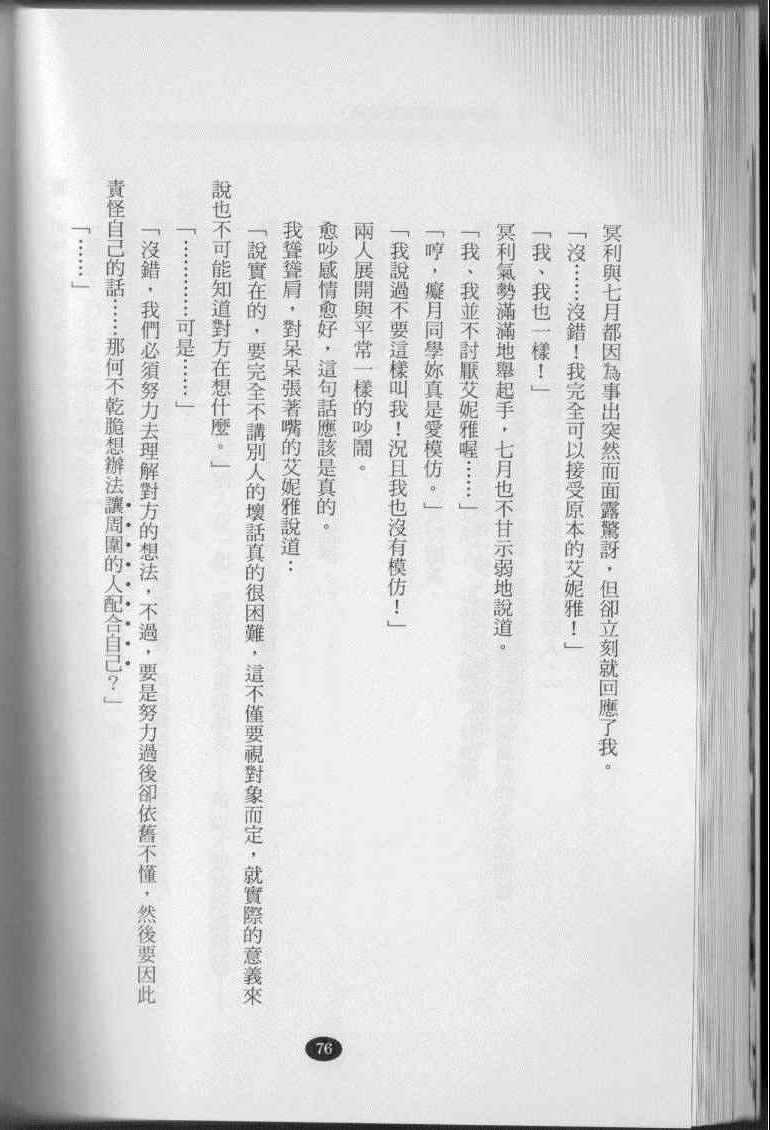 冥利與七月都因為事出突然而面露驚訝，但卻立刻就回應了我。
「沒……沒錯！我完全可以接受原本的艾妮雅！」
「我、我也一樣！」
冥利氣勢滿滿地舉起手，七月也不甘示弱地說道。
「我、我並不討厭艾妮雅喔……」
「哼，癡月同學妳真是愛模仿。」
「我說過不要這樣叫我！況且我也沒有模仿！」
兩人展開與平常一樣的吵鬧。
愈吵感情愈好，這句話應該是真的。
我聳聳肩，對呆呆張著嘴的艾妮雅說道：
「說實在的，要完全不講別人的壞話真的很困難，這不僅要視對象而定，就實際的意義來
說也不可能知道對方在想什麼。」
「…………可是……」
「沒錯，我們必須努力去理解對方的想法，不過，要是努力過後卻依舊不懂，然後要因此
責怪自己的話……那何不乾脆想辦法讓周圍的人配合自己？」
「……」
76